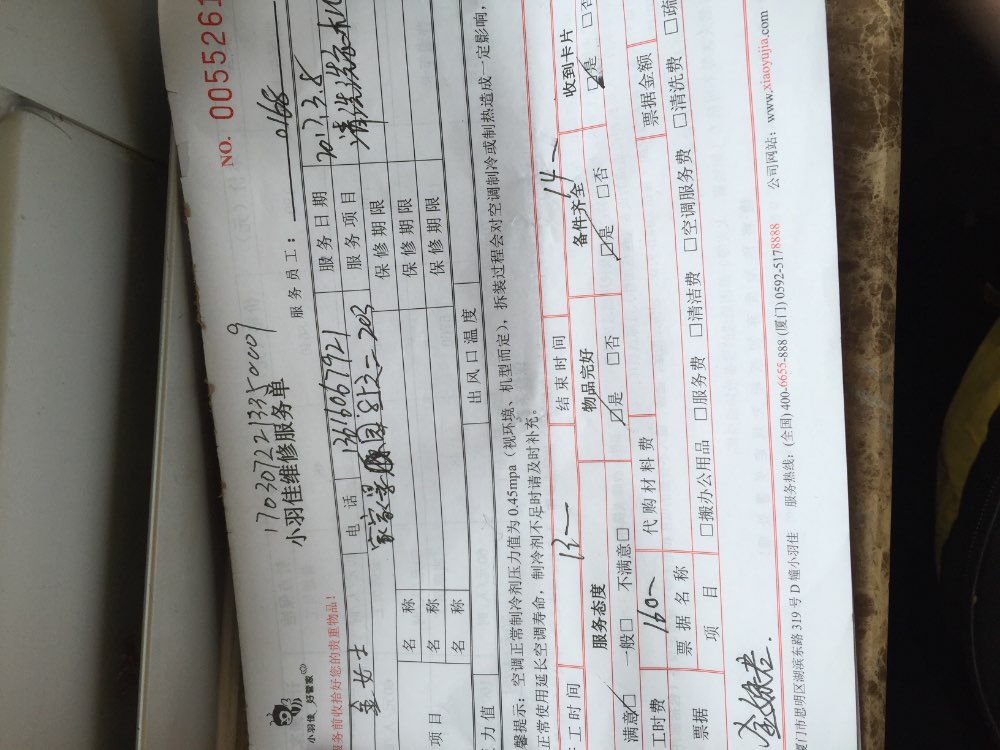 小羽佳 好管家
NO. 0055261
170307213350009
小羽佳维修服务单
服务员工： 0168
服务前收拾好您的贵重物品！
金女士 电 话 13616067921 服务日期 2017.3.8
服务项目 清洗洗衣机
名 称 保修期限
项目 名 称 保修期限
名 称 保修期限
力值 出风口温度
馨提示：空调正常制冷剂压力值为 0.45mpa（视环境、机型而定），拆装过程会对空调制冷或制热造成一定影响，
正常使用延长空调寿命，制冷剂不足时请及时补充。
工时间 13— 结束时间 14—
服务态度 物品完好 备件齐全 收到卡片
满意☑ 一般□ 不满意□ ☑是 □否 ☑是 □否 ☑是 □否
工时费 160— 代购材料费
票据 票据名称 票据金额
项 目 □搬办公用品 □服务费 □清洁费 □空调服务费 □清洗费 □疏
厦门市思明区湖滨东路 319 号 D 幢小羽佳 服务热线：(全国) 400-6655-888 (厦门) 0592-5178888 公司网站：www.xiaoyujia.com